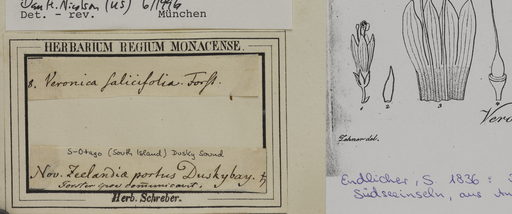 Dan H. Nicolson (US) 6/1996
Det. - rev. München
HERBARIUM REGIUM MONACENSE.
8. Veronica salicifolia. Forst.
S-Otago (South Island) Dusky Sound
Nov. Zeelandia portus Duskybay.
Forster
communicavit.
Herb. Schreber.
1 2 3
Zehner del.
Endlicher, S. 1836:
Südseeinseln, aus